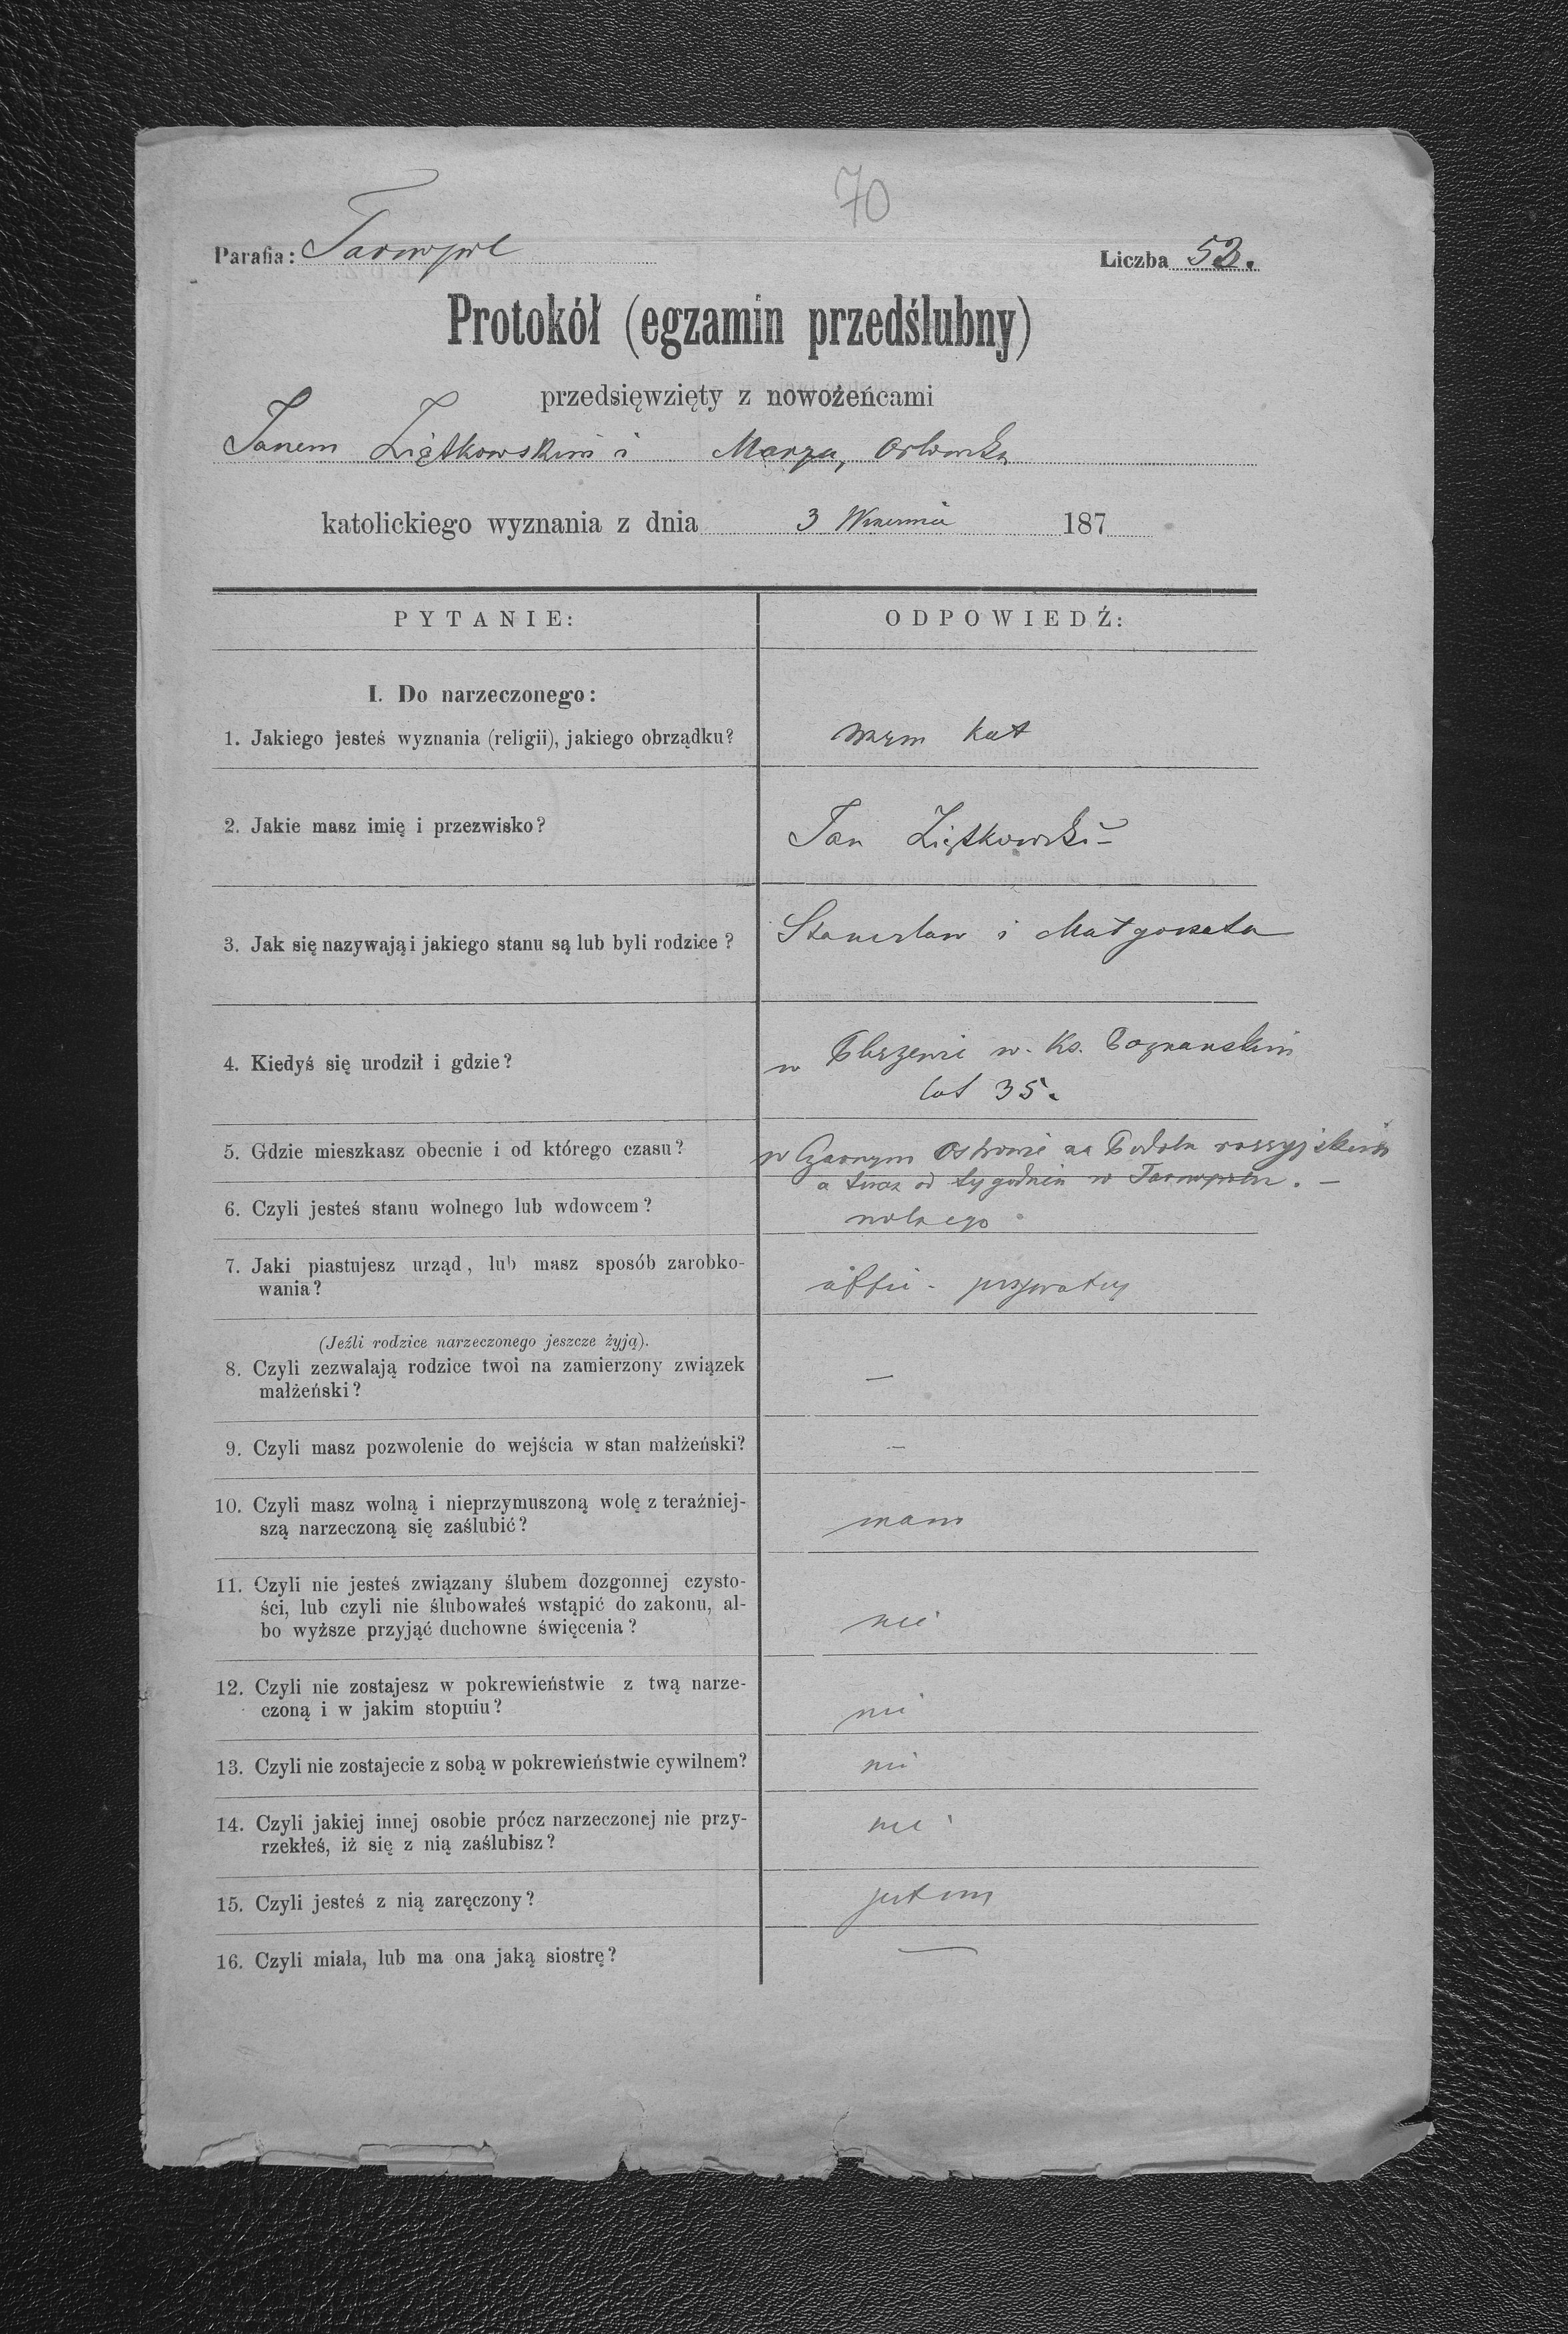 70
Parafia: Tarnopol Liczba 53.
Protokół (egzamin przedślubny)
przedsięwzięty z nowożeńcami
Janem Ziętkowskim i Maryą Orłowską
katolickiego wyznania z dnia 3 Września 187
PYTANIE: ODPOWIEDŹ:
I. Do narzeczonego:
1. Jakiego jesteś wyznania (religii), jakiego obrządku? rzym kat
2. Jakie masz imię i przezwisko? Jan Ziętkowski
3. Jak się nazywają i jakiego stanu są lub byli rodzice? Stanisław i Małgorzata
4. Kiedyś się urodził i gdzie? w w. Ks. Poznańskim
lat 35.
5. Gdzie mieszkasz obecnie i od którego czasu? w Czarnym Ostrowie na Podolu rossyjskim
a teraz od tygodnia w Tarnopolu. —
6. Czyli jesteś stanu wolnego lub wdowcem? wolnego
7. Jaki piastujesz urząd, lub masz sposób zarobko-
wania? prywatny
(Jeźli rodzice narzeczonego jeszcze żyją).
8. Czyli zezwalają rodzice twoi na zamierzony związek
małżeński? —
9. Czyli masz pozwolenie do wejścia w stan małżeński? —
10. Czyli masz wolną i nieprzymuszoną wolę z teraźniej-
szą narzeczoną się zaślubić? mam
11. Czyli nie jesteś związany ślubem dozgonnej czysto-
ści, lub czyli nie ślubowałeś wstąpić do zakonu, al-
bo wyższe przyjąć duchowne święcenia? nie
12. Czyli nie zostajesz w pokrewieństwie z twą narze-
czoną i w jakim stopuiu? nie
13. Czyli nie zostajecie z sobą w pokrewieństwie cywilnem? nie
14. Czyli jakiej innej osobie prócz narzeczonej nie przy-
rzekłeś, iż się z nią zaślubisz? nie
15. Czyli jesteś z nią zaręczony? jestem
16. Czyli miała, lub ma ona jaką siostrę? —